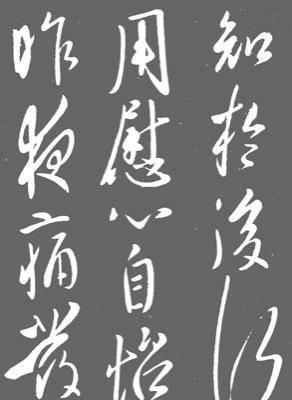 知於後行
用慰心自
昨夜痛發